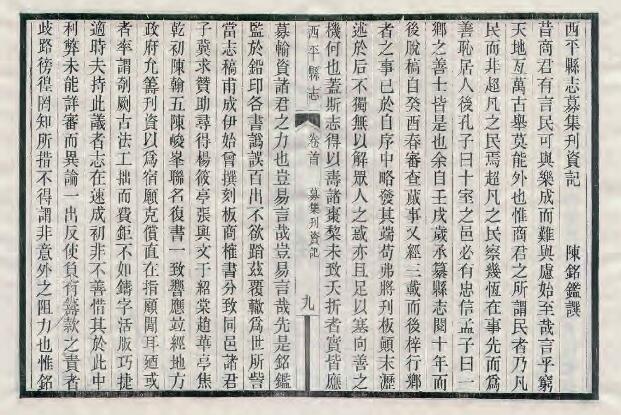 西平縣志募集刊資記　陳銘鑑譔
昔商君有言民可與樂成而難與慮始至哉言乎窮
天地亙萬古舉莫能外也惟商君之所謂民者乃凡
民而非超凡之民焉超凡之民察幾恆在事先而爲
善恥居人後孔子曰十室之邑必有忠信孟子曰一
鄉之善士皆是也余自壬戌歲承纂縣志閱十年而
後脫稿自癸酉春審查蕆事又經三載而後梓行鄉
者之事已於自序中略發其端茍弗將刋板顚末瀝
述於后不獨無以解衆人之惑亦且足以塞向善之
機何也蓋斯志得以壽諸棗棃未致夭折者實皆應
西平縣志
卷首　募集刋資記
九
募輸資諸君之力也豈易言哉豈易言哉先是銘鑑
監於鉛印各書譌誤百出不欲蹈茲覆轍爲世所訾
當志稿甫成伊始曾撰刻板商榷書分致同邑諸君
子冀求贊助尋得楊筱亭張興文于紹棠趙華亭焦
乾初陳翰五陳峻峯聯名復書一致響應竝經地方
政府允籌刋資以爲宿願克償直在指顧閒耳迺或
者率謂剞劂古法工拙而費鉅不如鑄字活版巧捷
適時夫持此議者志在速成初非不善惜其於此中
利弊未能詳審而異論一出反使負有籌款之責者
歧路徬徨罔知所措不得謂非意外之阻力也惟銘